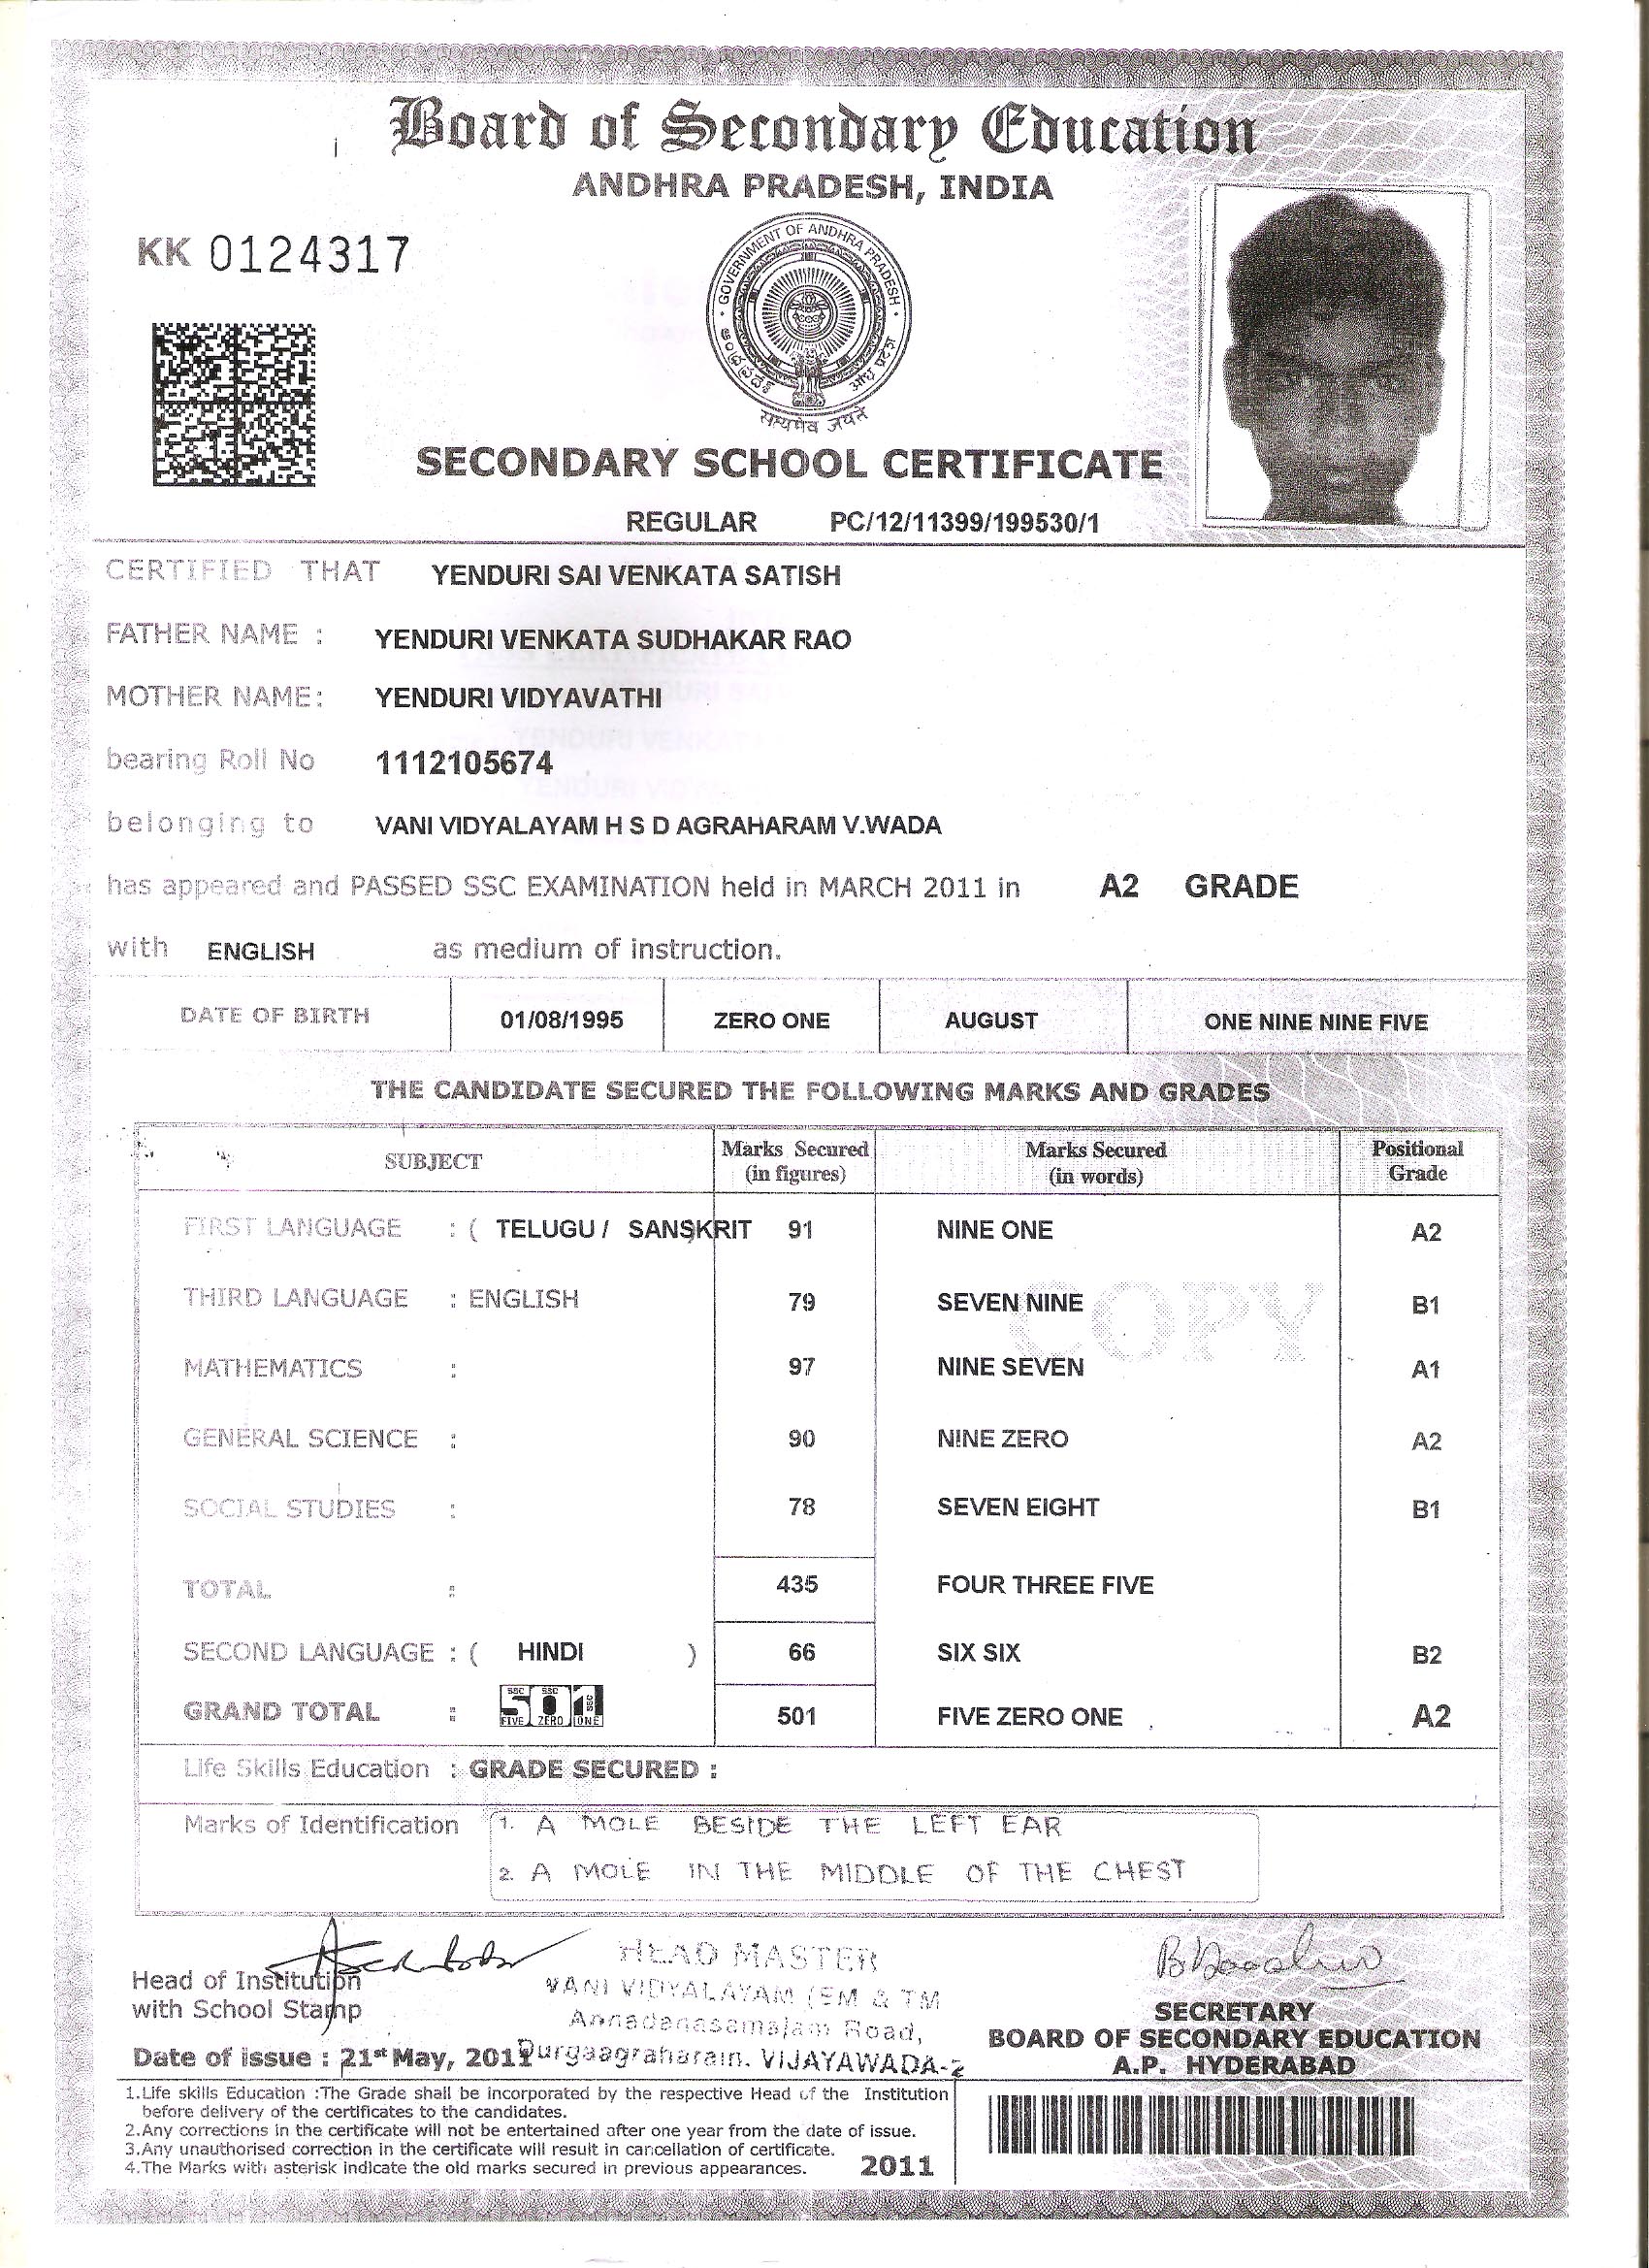 Board of Secondary Education
ANDHRA PRADESH, INDIA
KK 0124317
GOVERNMENT OF ANDHRA PRADESH
सत्यमेव जयते
SECONDARY SCHOOL CERTIFICATE
REGULAR PC/12/11399/199530/1
CERTIFIED THAT YENDURI SAI VENKATA SATISH
FATHER NAME : YENDURI VENKATA SUDHAKAR RAO
MOTHER NAME: YENDURI VIDYAVATHI
bearing Roll No 1112105674
belonging to VANI VIDYALAYAM H S D AGRAHARAM V.WADA
has appeared and PASSED SSC EXAMINATION held in MARCH 2011 in A2 GRADE
with ENGLISH as medium of instruction.
DATE OF BIRTH 01/08/1995 ZERO ONE AUGUST ONE NINE NINE FIVE
THE CANDIDATE SECURED THE FOLLOWING MARKS AND GRADES
SUBJECT Marks Secured (in figures) Marks Secured (in words) Positional Grade
FIRST LANGUAGE : ( TELUGU / SANSKRIT ) 91 NINE ONE A2
THIRD LANGUAGE : ENGLISH 79 SEVEN NINE B1
COPY
MATHEMATICS : 97 NINE SEVEN A1
GENERAL SCIENCE : 90 NINE ZERO A2
SOCIAL STUDIES : 78 SEVEN EIGHT B1
TOTAL : 435 FOUR THREE FIVE
SECOND LANGUAGE : ( HINDI ) 66 SIX SIX B2
GRAND TOTAL : 501 FIVE ZERO ONE 501 FIVE ZERO ONE A2
Life Skills Education : GRADE SECURED :
Marks of Identification 1. A MOLE BESIDE THE LEFT EAR
2. A MOLE IN THE MIDDLE OF THE CHEST
Head of Institution
with School Stamp
HEAD MASTER
VANI VIDYALAYAM (EM & TM
Annadanasamajam Road,
Durgaagraharam. VIJAYAWADA-2
Date of issue : 21st May, 2011
SECRETARY
BOARD OF SECONDARY EDUCATION
A.P. HYDERABAD
1.Life skills Education :The Grade shall be incorporated by the respective Head of the Institution
before delivery of the certificates to the candidates.
2.Any corrections in the certificate will not be entertained after one year from the date of issue.
3.Any unauthorised correction in the certificate will result in cancellation of certificate.
4.The Marks with asterisk indicate the old marks secured in previous appearances.
2011